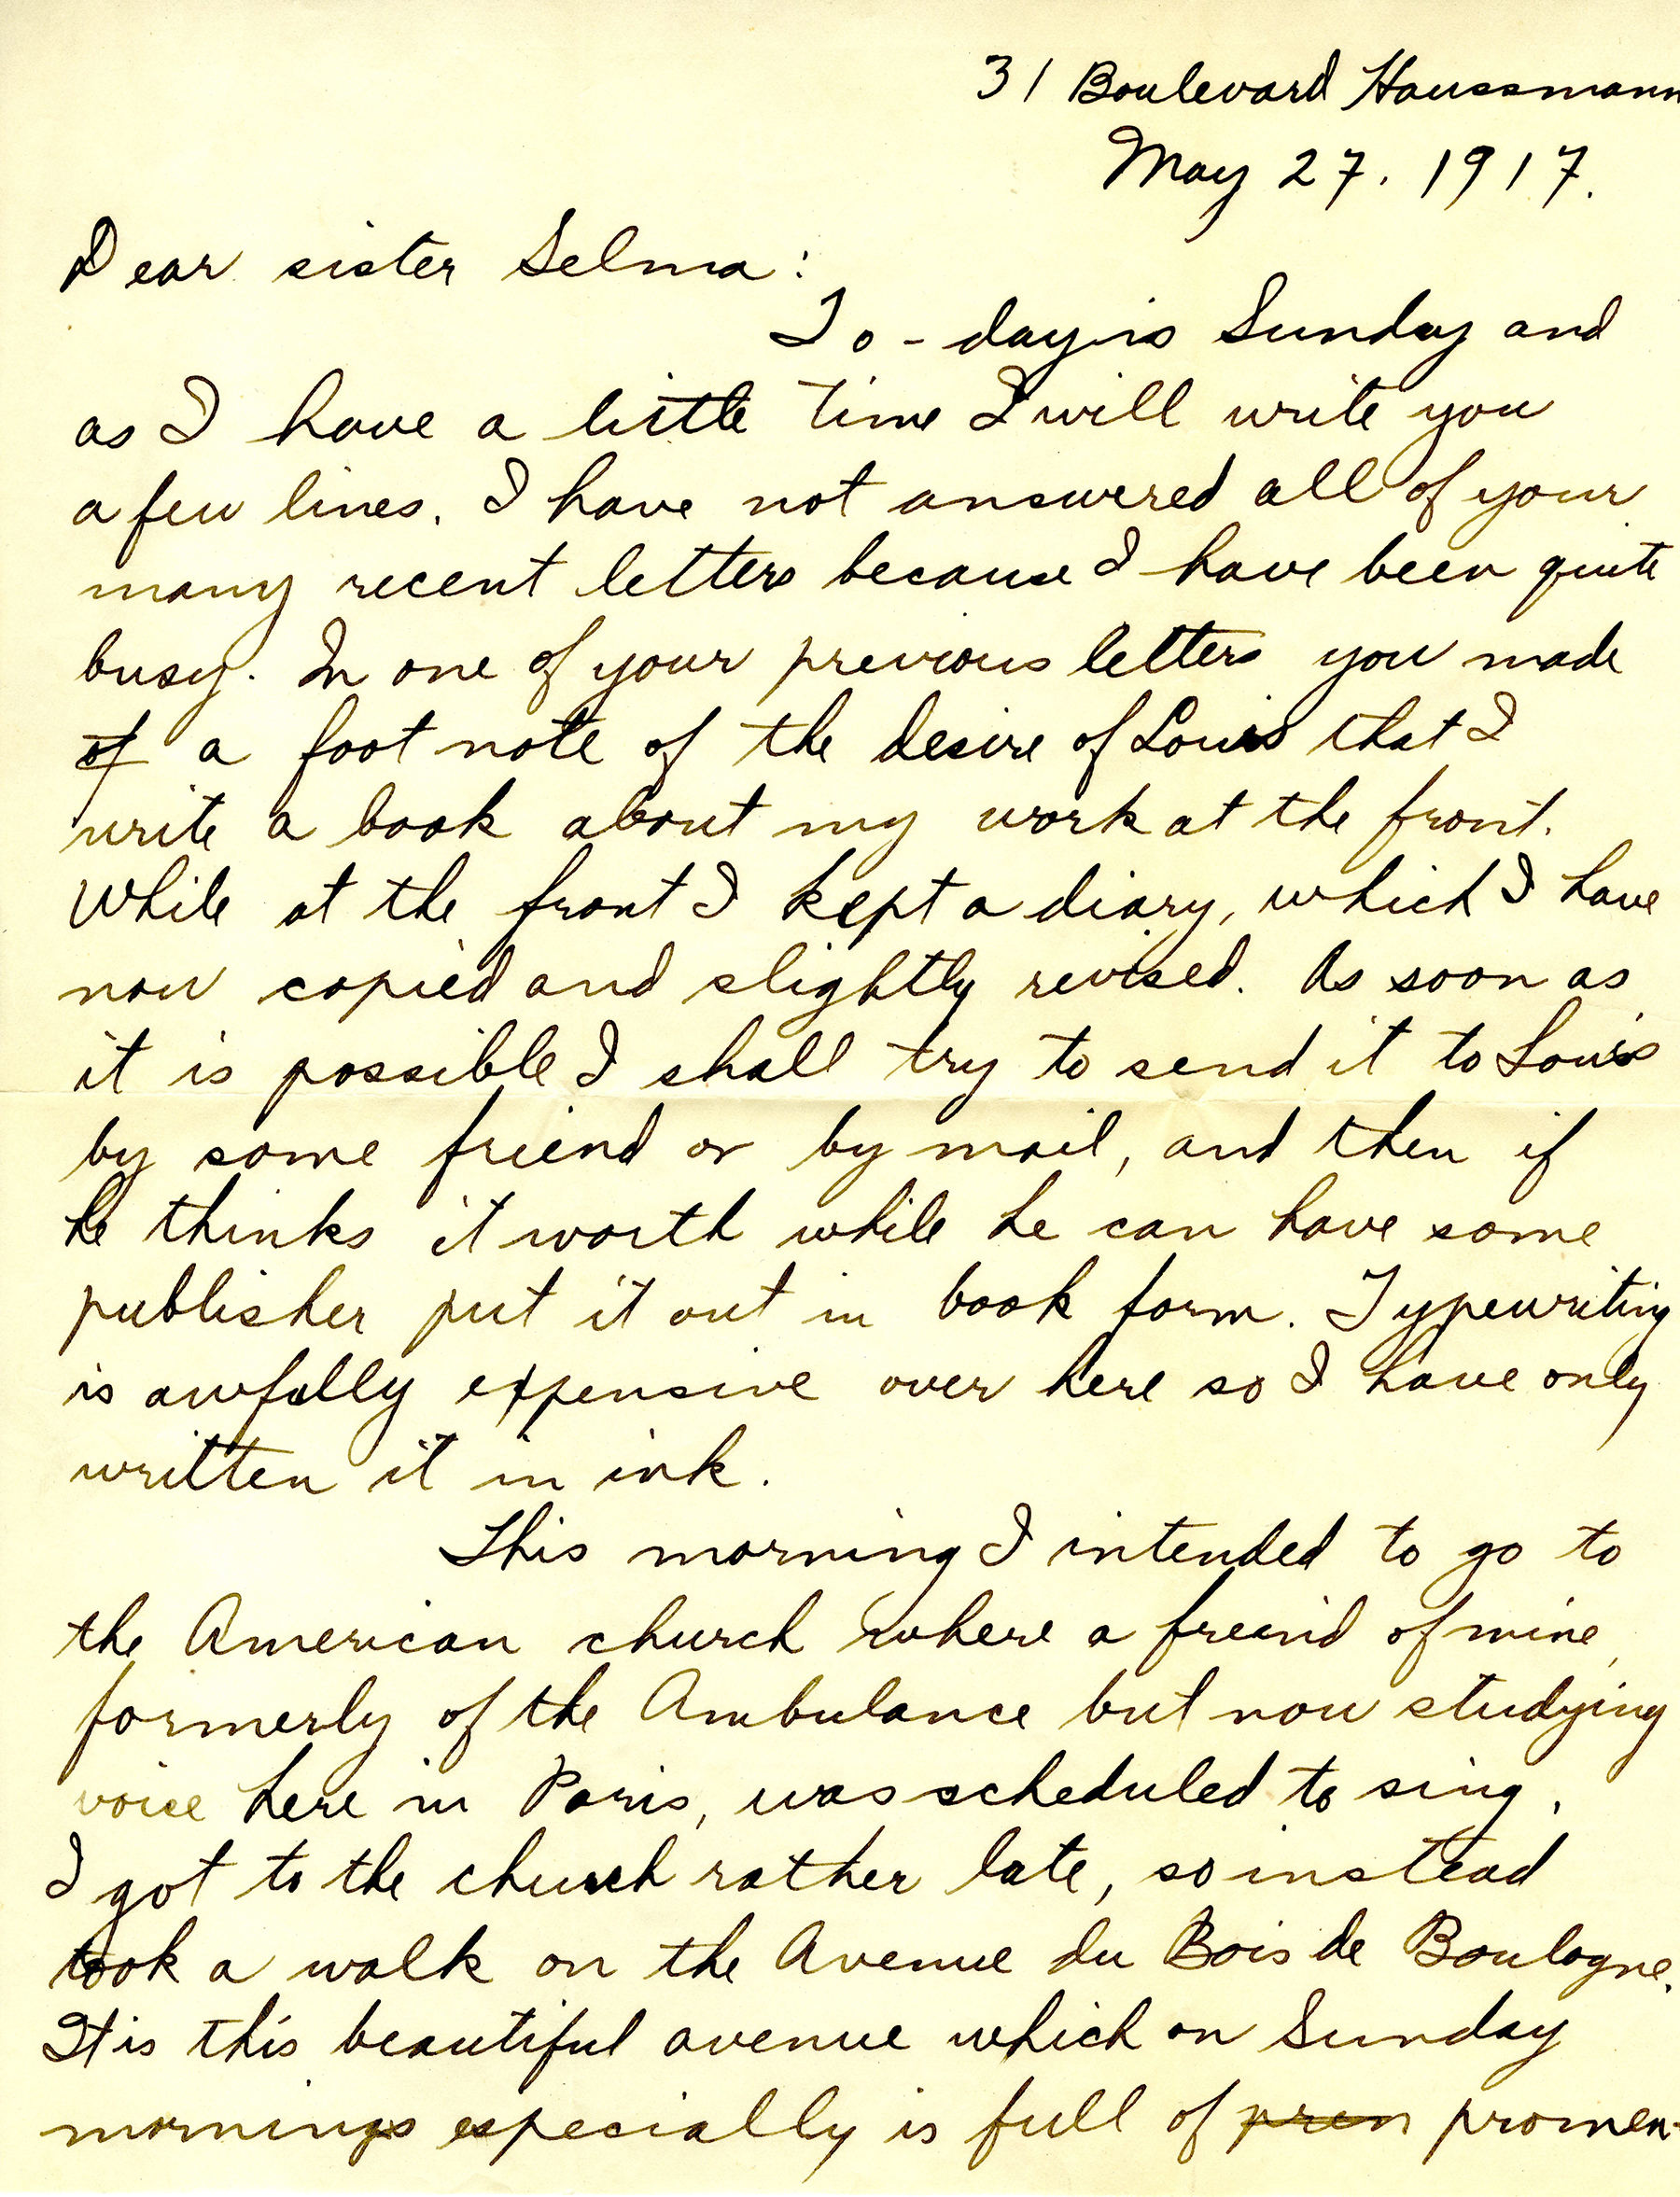 31 Boulevard Haussmann
May 27. 1917.
Dear sister Selma:
To-day is Sunday and
as I have a little time I will write you
a few lines. I have not answered all of your
many recent letters because I have been quite
busy. In one of your previous letters you made
of a foot note of the desire of Louis that I
write a book about my work at the front.
While at the front I kept a diary, which I have
now copied and slightly revised. As soon as
it is possible I shall try to send it to Louis
by some friend or by mail, and then if
he thinks it worth while he can have some
publisher put it out in book form. Typewriting
is awfully expensive over here so I have only
written it in ink.
This morning I intended to go to
the American church where a freind of mine,
formerly of the Ambulance but now studying
voice here in Paris, was scheduled to sing.
I got to the church rather late, so instead
took a walk on the Avenue du Bois de Boulogne.
It is this beautiful avenue which on Sunday
mornings especially is full of pren promen-